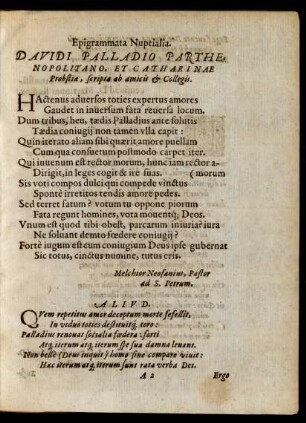 Epigrammata Nuptialia.
DAVIDI PALLADIO PARTHE-
NOPOLITANO, ET CATHARINAE
Probstia, scripta ab amicis & Collegis.
HActenus adversos toties expertus amores
Gaudet in inversum fata reversa locum.
Dum tribus, heu, tædis Palladius ante solutis
Tædia coniugij non tamen vlla capit:
Quin iterato aliam sibi quærit amore puellam
Cum qua consuetum postmodo carpet iter.
Qui iuuenum est rector morum, hunc iam rector a-
Dirigit, in leges cogit & ire suas. (morum
Sis voti compos dulci qui compede vinctus
Spontè irretitos tendis amore pedes.
Sed terret fatum? votum tu oppone piorum
Fata regunt homines, vota mouentq́; Deos.
Vnum est quod tibi obest, parcarum iniuria? iura
Ne soluant demto fœdere coniugij?
Fortè iugum est eum coniugium Deus ipse gubernat
Sic totus, cinctus numine, tutus eris.
Melchior Neofanius, Pastor
ad S. Petrum.
ALIVD.
QVem repetitus amor deceptum morte fefellit,
In viduo toties destituitq́, toro:
Palladius renouat socialia fœdera: forti
Atq, iterum atq, iterum spe sua damna leuans.
Non bellè (Deus inquit) homo sine compare viuit:
Hac iterum atq, iterum sunt rata verba Dei.
A 2 Ergo